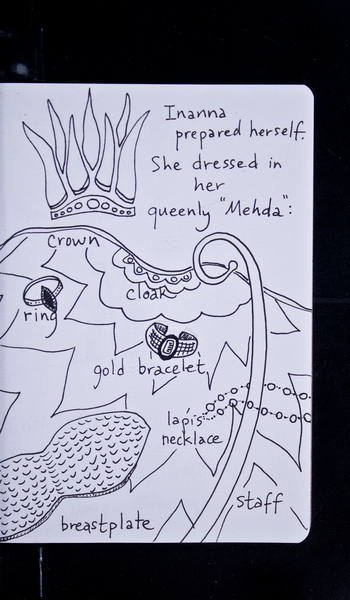 Inanna
prepared herself.
She dressed in
her
queenly "Mehda":
crown
cloak
ring
gold bracelet
lapis
necklace
staff
breastplate